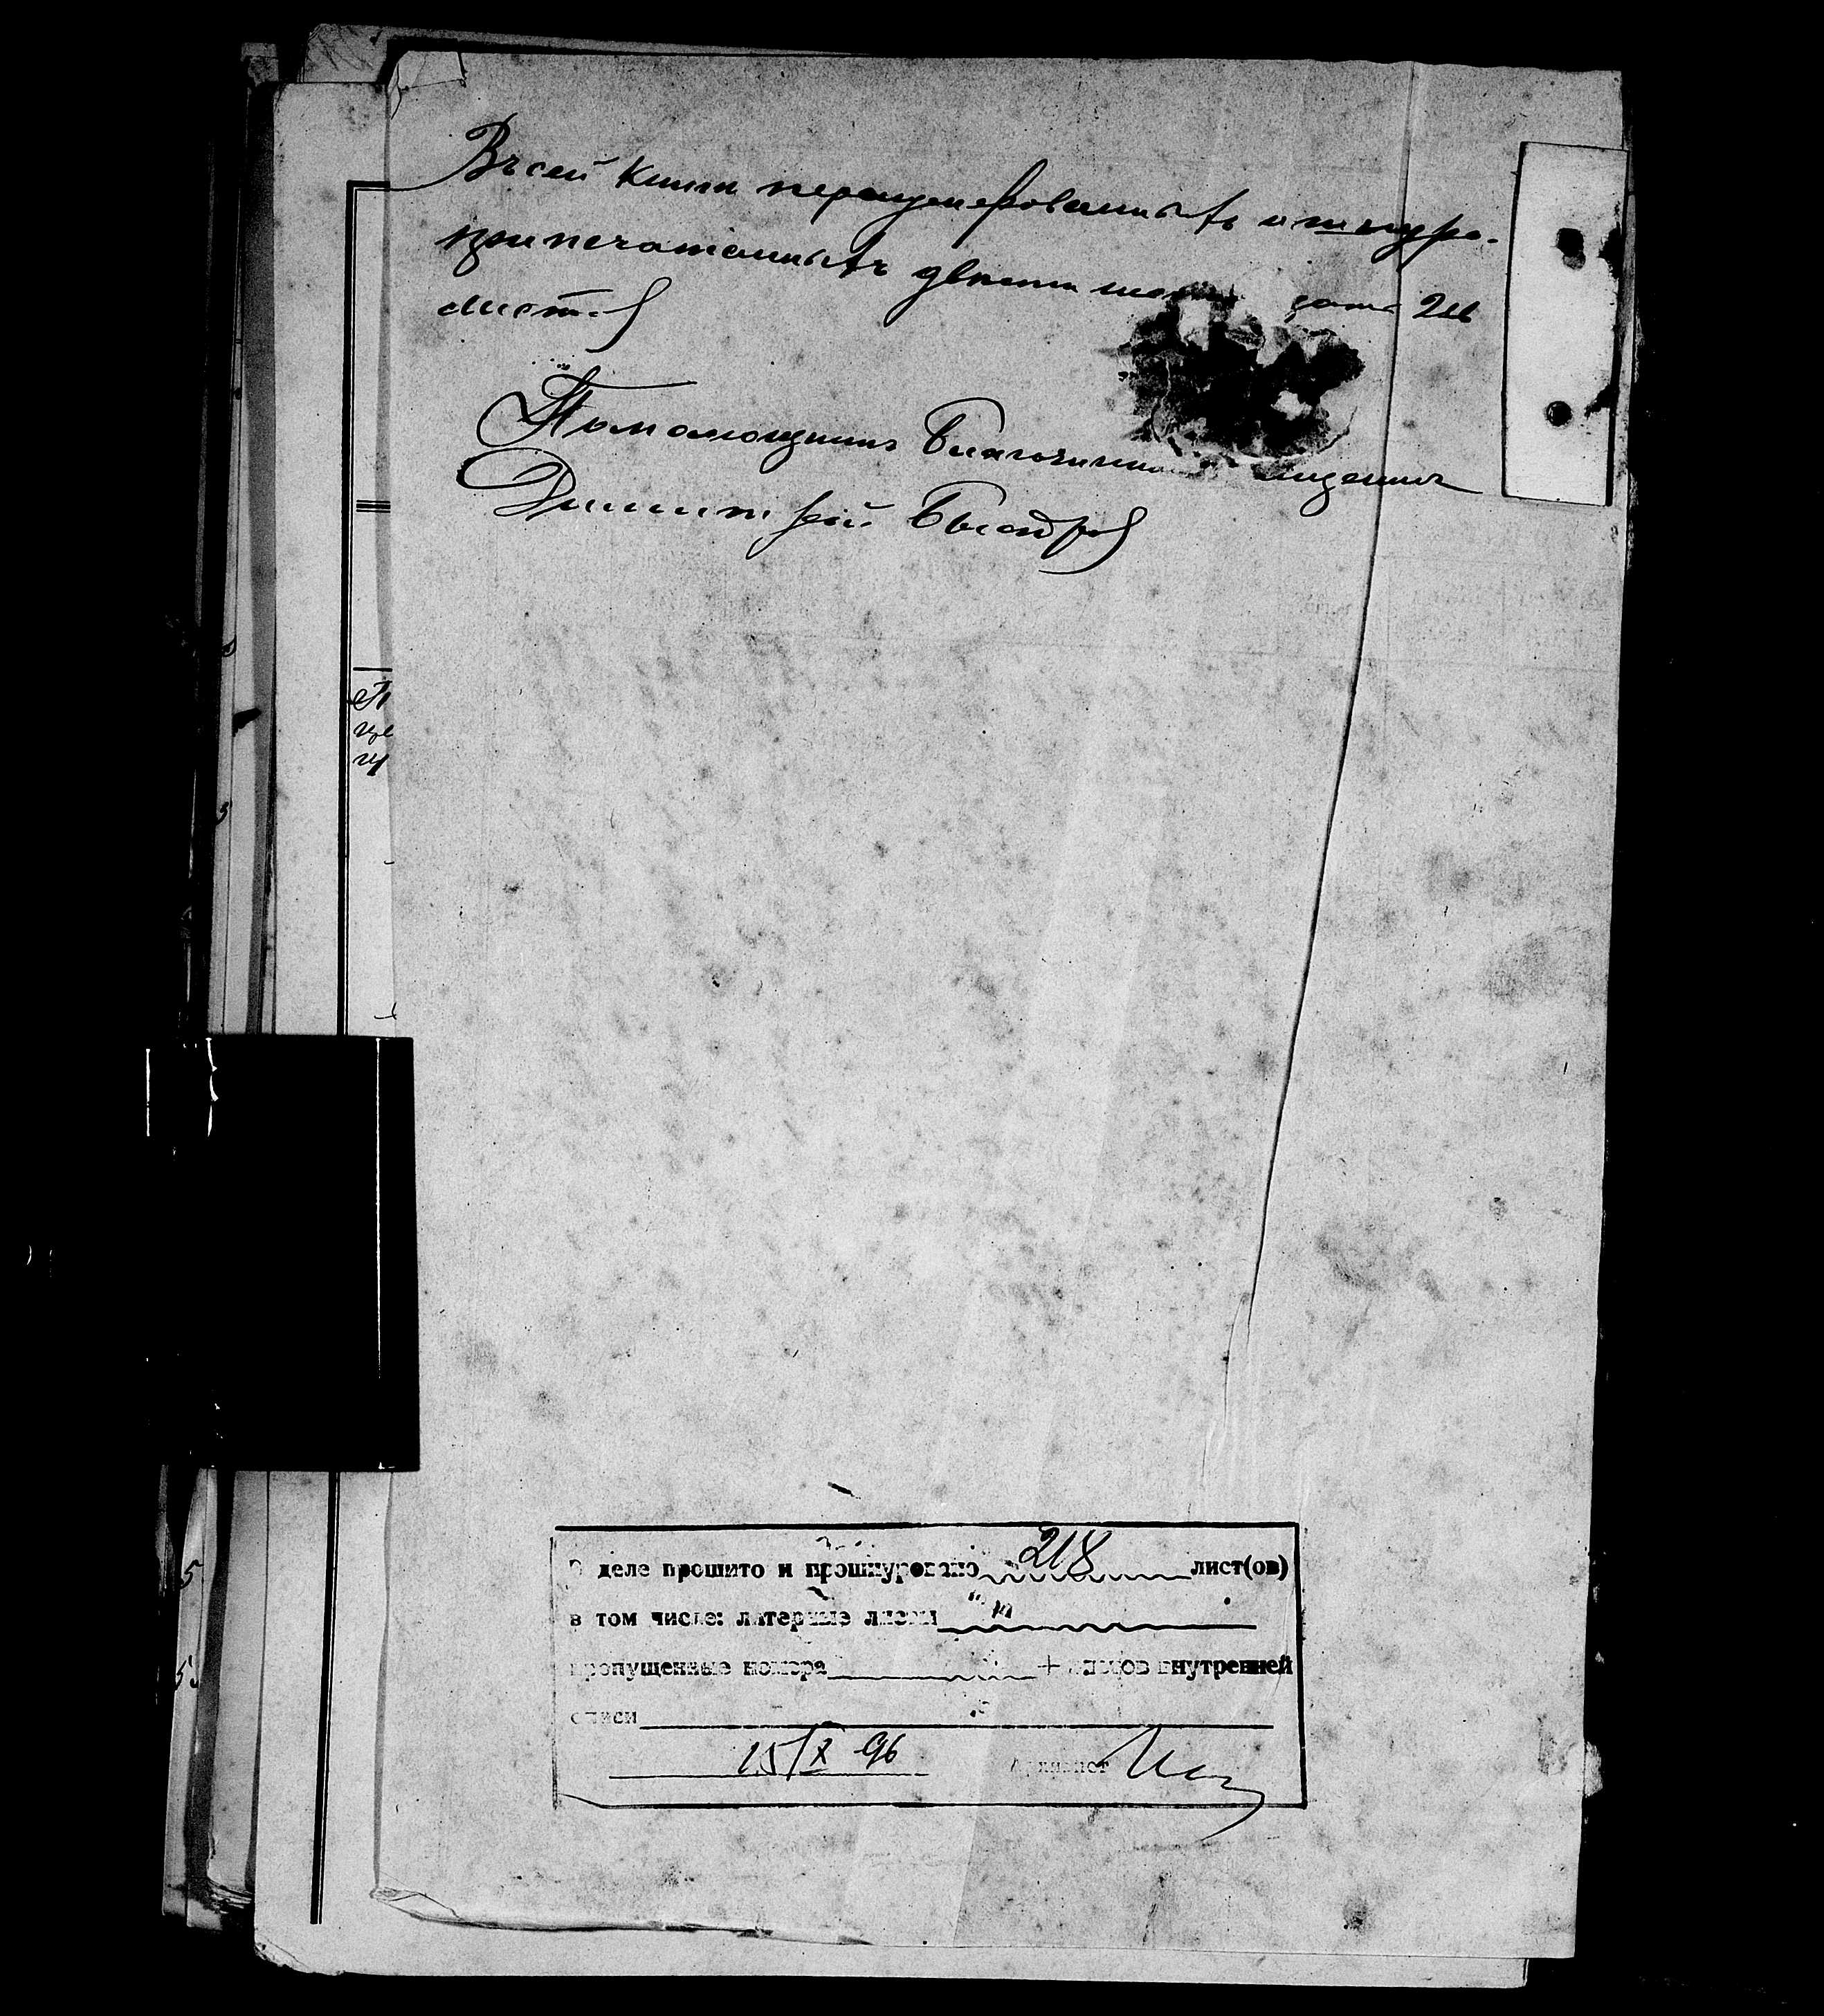 Въ сей книги перенумерованныхъ и шнуро-
припечатанныхъ двести шест цать 216
листов
Помощникъ Благочинна ященникъ
Димитрій Быстров
В деле прошито и прошнуровано 218 лист(ов)
в том числе: литерные листы
пропущенные номера + листов внутренней
описи
15/X 96 Архивист